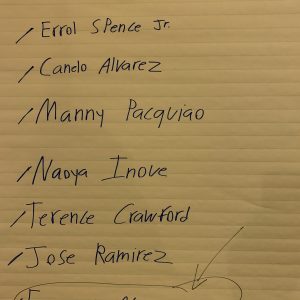 /Errol Spence Jr.
/Canelo Alvarez
/Manny Pacquiao
/Naoya Inoue
/Terence Crawford
/Jose Ramirez